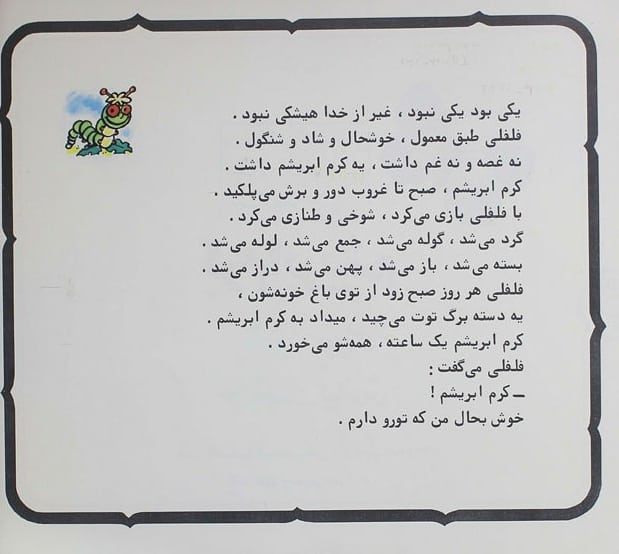 یکی بود یکی نبود ، غیر از خدا هیشکی نبود .
فلفلی طبق معمول ، خوشحال و شاد و شنگول .
نه غصه و نه غم داشت ، یه کرم ابریشم داشت .
کرم ابریشم ، صبح تا غروب دور و برش می‌پلکید .
با فلفلی بازی می‌کرد ، شوخی و طنازی می‌کرد .
گرد می‌شد ، گوله می‌شد ، جمع می‌شد ، لوله می‌شد .
بسته می‌شد ، باز می‌شد ، پهن می‌شد ، دراز می‌شد .
فلفلی هر روز صبح زود از توی باغ خونه‌شون ،
یه دسته برگ توت می‌چید ، میداد به کرم ابریشم .
کرم ابریشم یک ساعته ، همه‌شو می‌خورد .
فلفلی می‌گفت :
ـ کرم ابریشم !
خوش بحال من که تورو دارم .